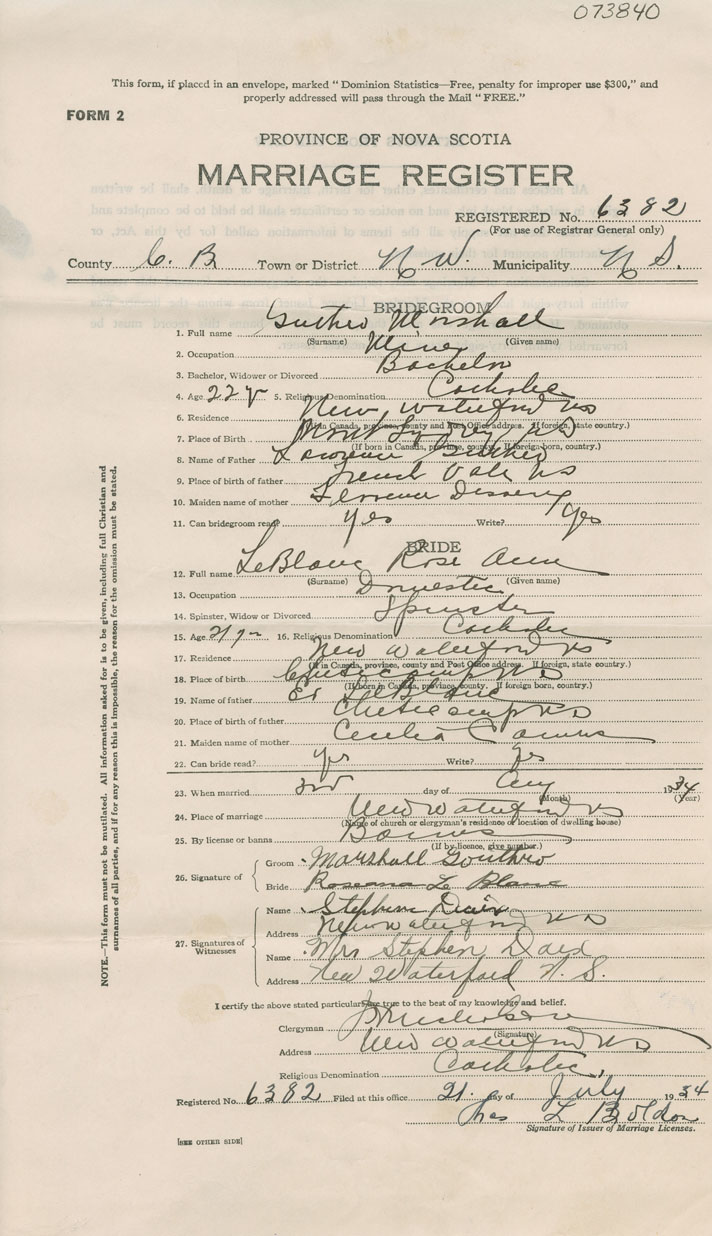 073840
This form, if placed in an envelope, marked "Dominion Statistics—Free, penalty for improper use $300," and
properly addressed will pass through the Mail "FREE."
FORM 2
PROVINCE OF NOVA SCOTIA
MARRIAGE REGISTER
REGISTERED No. 6382
(For use of Registrar General only)
County C. B Town or District N W. Municipality N S.
BRIDEGROOM
1. Full name Guthro Marshall
(Surname) (Given name)
2. Occupation Miner
3. Bachelor, Widower or Divorced Bachelor
4. Age 22 yr 5. Religious Denomination Catholic
6. Residence New Waterford NS
(If in Canada, province, county and Post Office address. If foreign, state country.)
7. Place of Birth
(If born in Canada, province, county. If foreign born, country.)
8. Name of Father Lawrence Guthro
9. Place of birth of father French Vale NS
10. Maiden name of mother Florence
11. Can bridegroom read? Yes Write? Yes
BRIDE
12. Full name LeBlanc Rose Ann
(Surname) (Given name)
13. Occupation Domestic
14. Spinster, Widow or Divorced Spinster
15. Age 21 yr 16. Religious Denomination Catholic
17. Residence New Waterford NS
(If in Canada, province, county and Post Office address. If foreign, state country.)
18. Place of birth Cheticamp NS
(If born in Canada, province, county. If foreign born, country.)
19. Name of father LeBlanc
20. Place of birth of father Cheticamp NS
21. Maiden name of mother Cecilia
22. Can bride read? Yes Write? Yes
23. When married 3rd day of 1934
(Month) (Year)
24. Place of marriage New Waterford NS
(Name of church or clergyman's residence or location of dwelling house)
25. By license or banns Banns
(If by licence, give number.)
26. Signature of
Groom Marshall Gouthro
Bride Roseann Le Blanc
27. Signatures of Witnesses
Name Stephen
Address New Waterford NS
Name Mrs Stephen
Address New Waterford N. S.
I certify the above stated particulars are true to the best of my knowledge and belief.
Clergyman
(Signature)
Address New Waterford NS
Religious Denomination Catholic
Registered No. 6382 Filed at this office 21. day of July 1934
Signature of Issuer of Marriage Licenses.
[SEE OTHER SIDE]
NOTE.—This form must not be mutilated. All information asked for is to be given, including full Christian and
surnames of all parties, and if for any reason this is impossible, the reason for the omission must be stated.